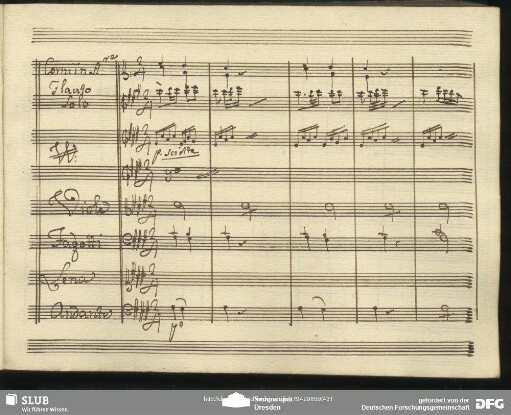 Corni in A
Flauto
Solo
VV:
p. sciolte
Viola
Fagotti
Lena
Andante
SLUB
wir führen Wissen.
Dresden
gefördert von der
Deutschen Forschungsgemeinschaft
DFG